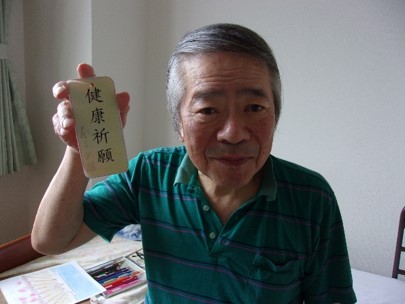 健康祈願